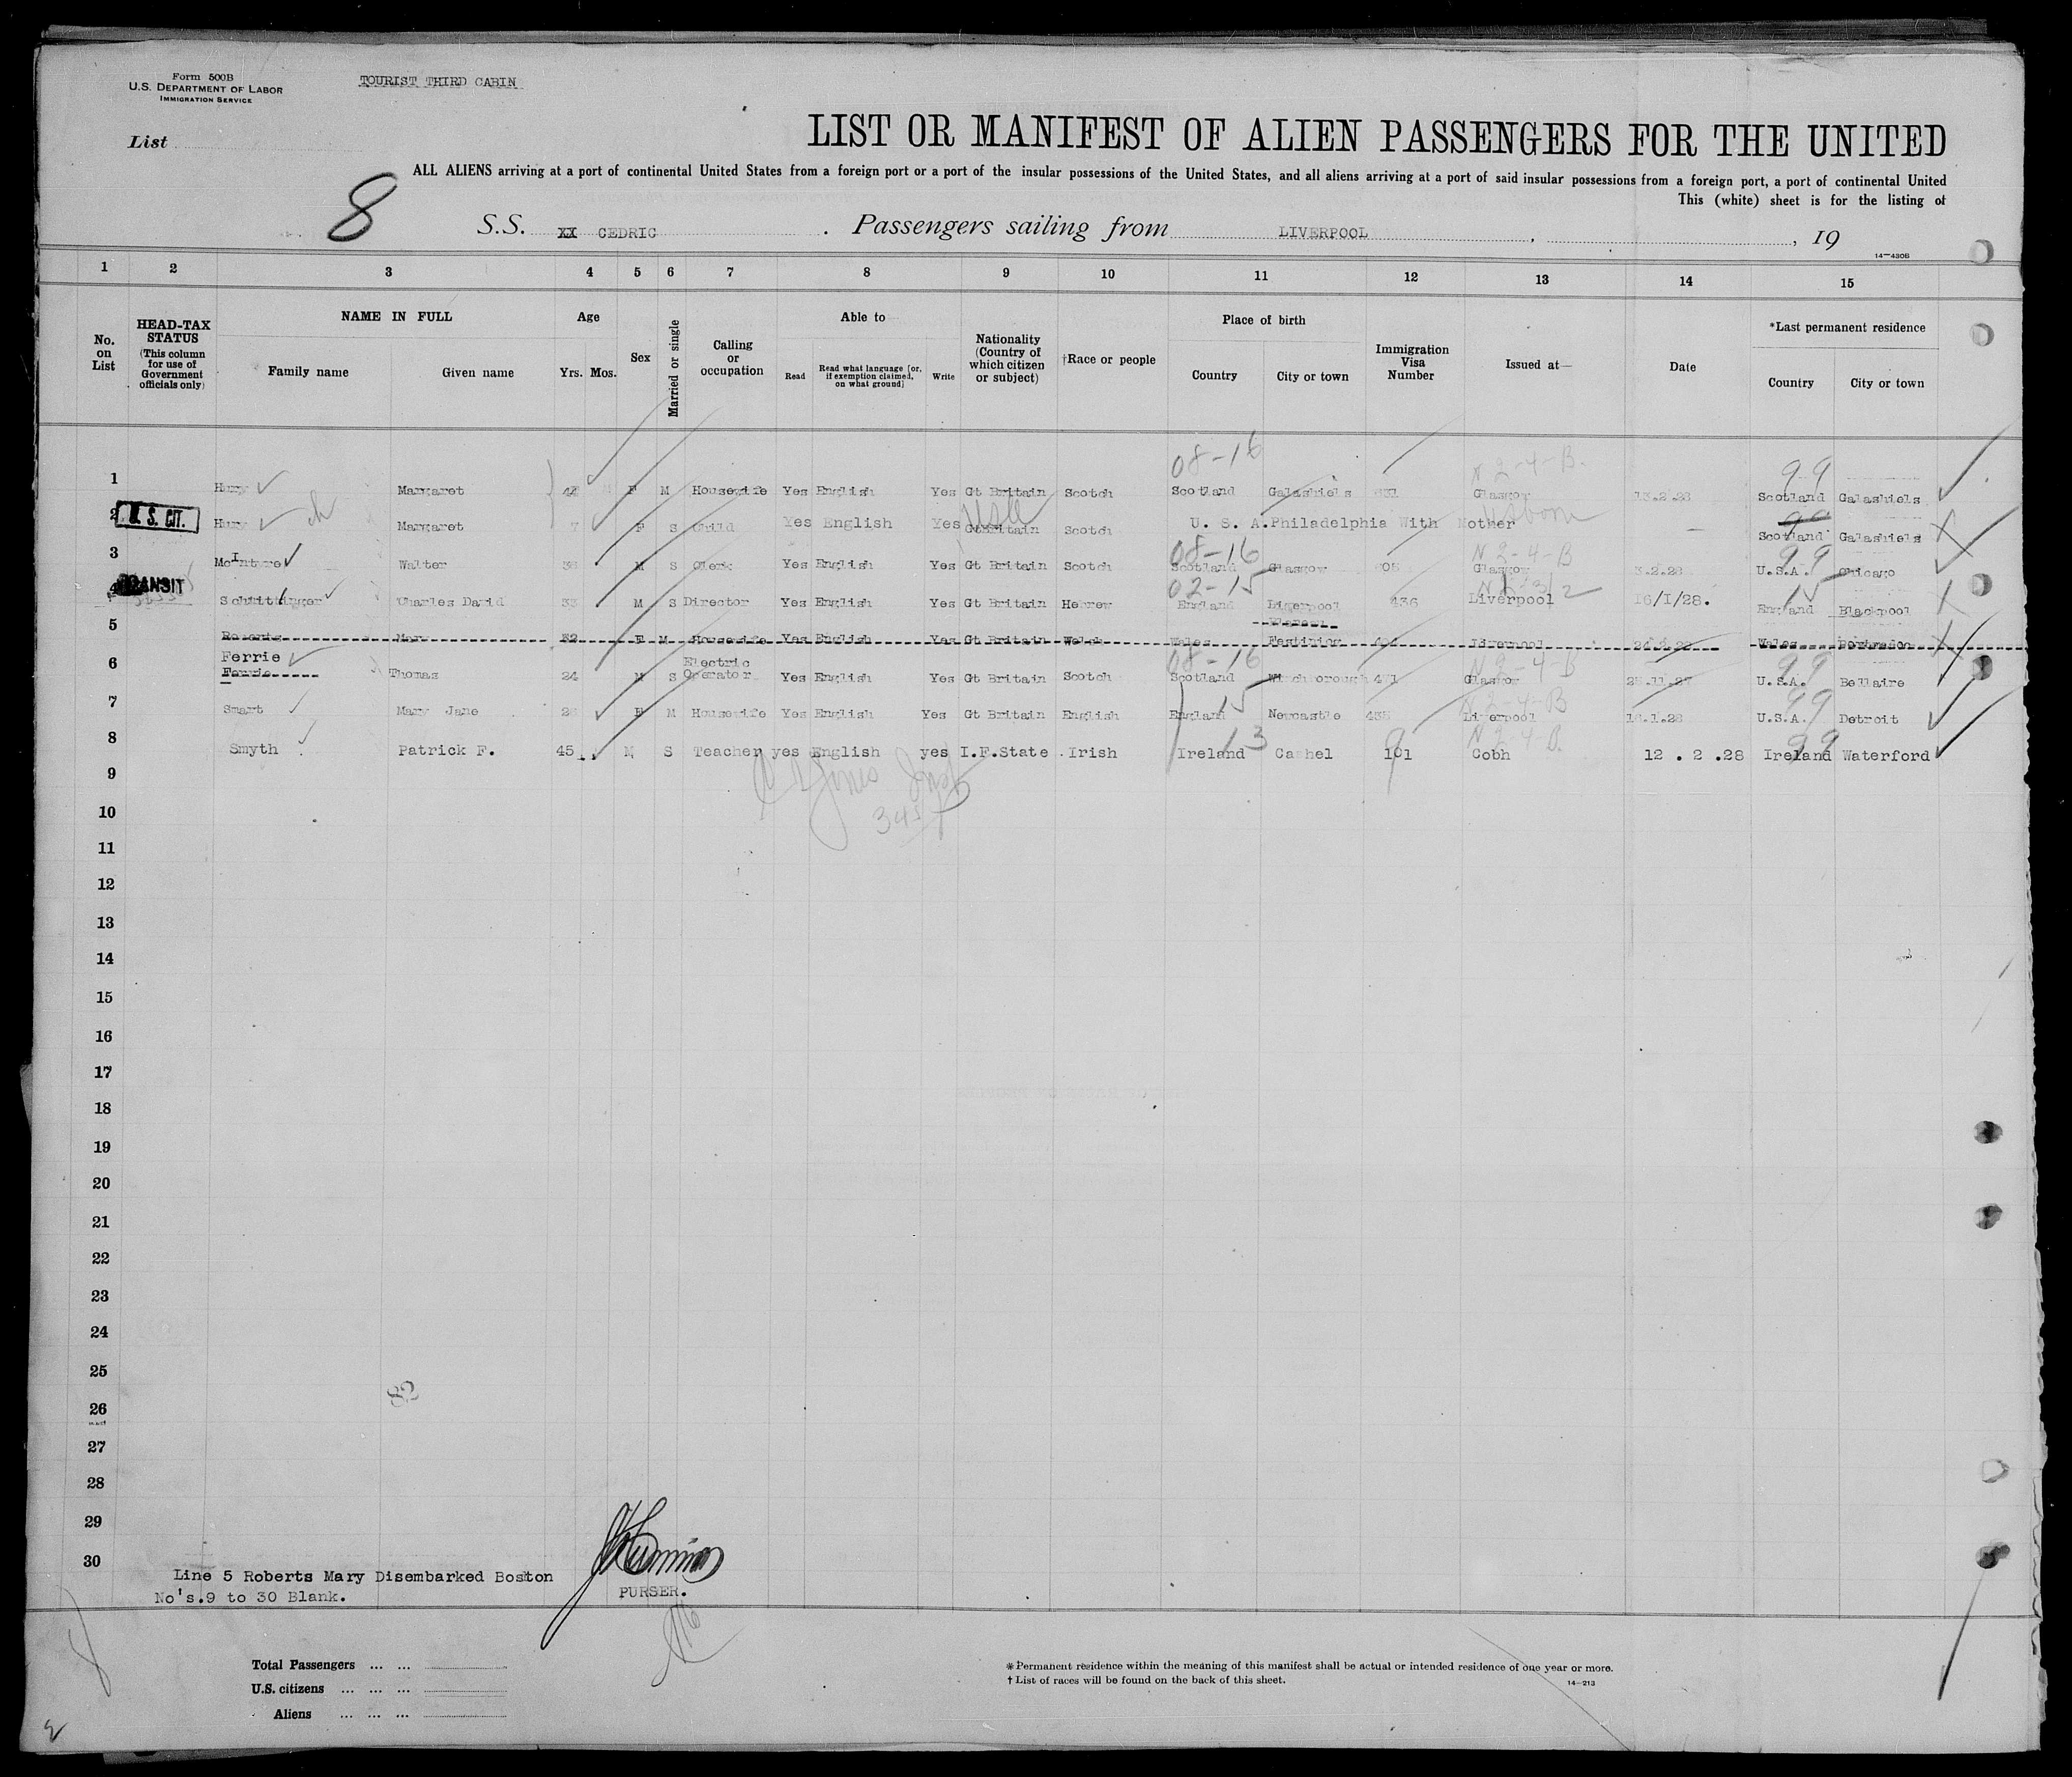 Form 500B
U.S. DEPARTMENT OF LABOR
IMMIGRATION SERVICE
TOURIST THIRD CABIN
List
LIST OR MANIFEST OF ALIEN PASSENGERS FOR THE UNITED
ALL ALIENS arriving at a port of continental United States from a foreign port or a port of the insular possessions of the United States, and all aliens arriving at a port of said insular possessions from a foreign port, a port of continental United
This (white) sheet is for the listing of
8 S.S. XX CEDRIC . Passengers sailing from LIVERPOOL , , 19
14—430B
1 2 3 4 5 6 7 8 9 10 11 12 13 14 15
No. on List
HEAD-TAX STATUS (This column for use of Government officials only)
NAME IN FULL Family name Given name
Age Yrs. Mos.
Sex
Married or single
Calling or occupation
Able to Read Read what language [or, if exemption claimed, on what ground] Write
Nationality (Country of which citizen or subject)
†Race or people
Place of birth Country City or town
Immigration Visa Number
Issued at—
Date
*Last permanent residence Country City or town
08-16 N 2-4-B. 99
1 Margaret F M Housewife Yes English Yes Gt Britain Scotch Scotland Galashiels Glasgow 13.2.28 Scotland Galashiels
2 U. S. CIT. Margaret 7 F S Child Yes English Yes Gt Britain Scotch U. S. A. Philadelphia With Mother Scotland Galashiels
08-16 N 2-4-B 99
3 McIntyre Walter M S Clerk Yes English Yes Gt Britain Scotch Scotland Glasgow Glasgow 3.2.28 U.S.A. Chicago
02-15 15
4 TRANSIT Charles David 33 M S Director Yes English Yes Gt Britain Hebrew England Liverpool 436 Liverpool 16/1/28. England Blackpool
5 Roberts Mary 52 F M Housewife Yes English Yes Gt Britain Welsh Wales Festiniog Liverpool Wales
08-16 N 2-4-B 99
6 Ferrie Ferrie Thomas 24 M S Electric Operator Yes English Yes Gt Britain Scotch Scotland 471 Glasgow 25.11.27 U.S.A. Bellaire
15 N 2-4-B 99
7 Smart Mary Jane F M Housewife Yes English Yes Gt Britain English England Newcastle Liverpool U.S.A. Detroit
13 N 2-4-B. 99
8 Smyth Patrick F. 45 M S Teacher yes English yes I.F.State Irish Ireland Cashel 101 Cobh 12 . 2 .28 Ireland Waterford
9
10
11
12
13
14
15
16
17
18
19
20
21
22
23
24
25
82
26
27
28
29
30
Line 5 Roberts Mary Disembarked Boston
No's.9 to 30 Blank.
PURSER.
Total Passengers ... ...
U.S. citizens ... ... ...
Aliens ... ... ...
* Permanent residence within the meaning of this manifest shall be actual or intended residence of one year or more.
† List of races will be found on the back of this sheet.
14—213